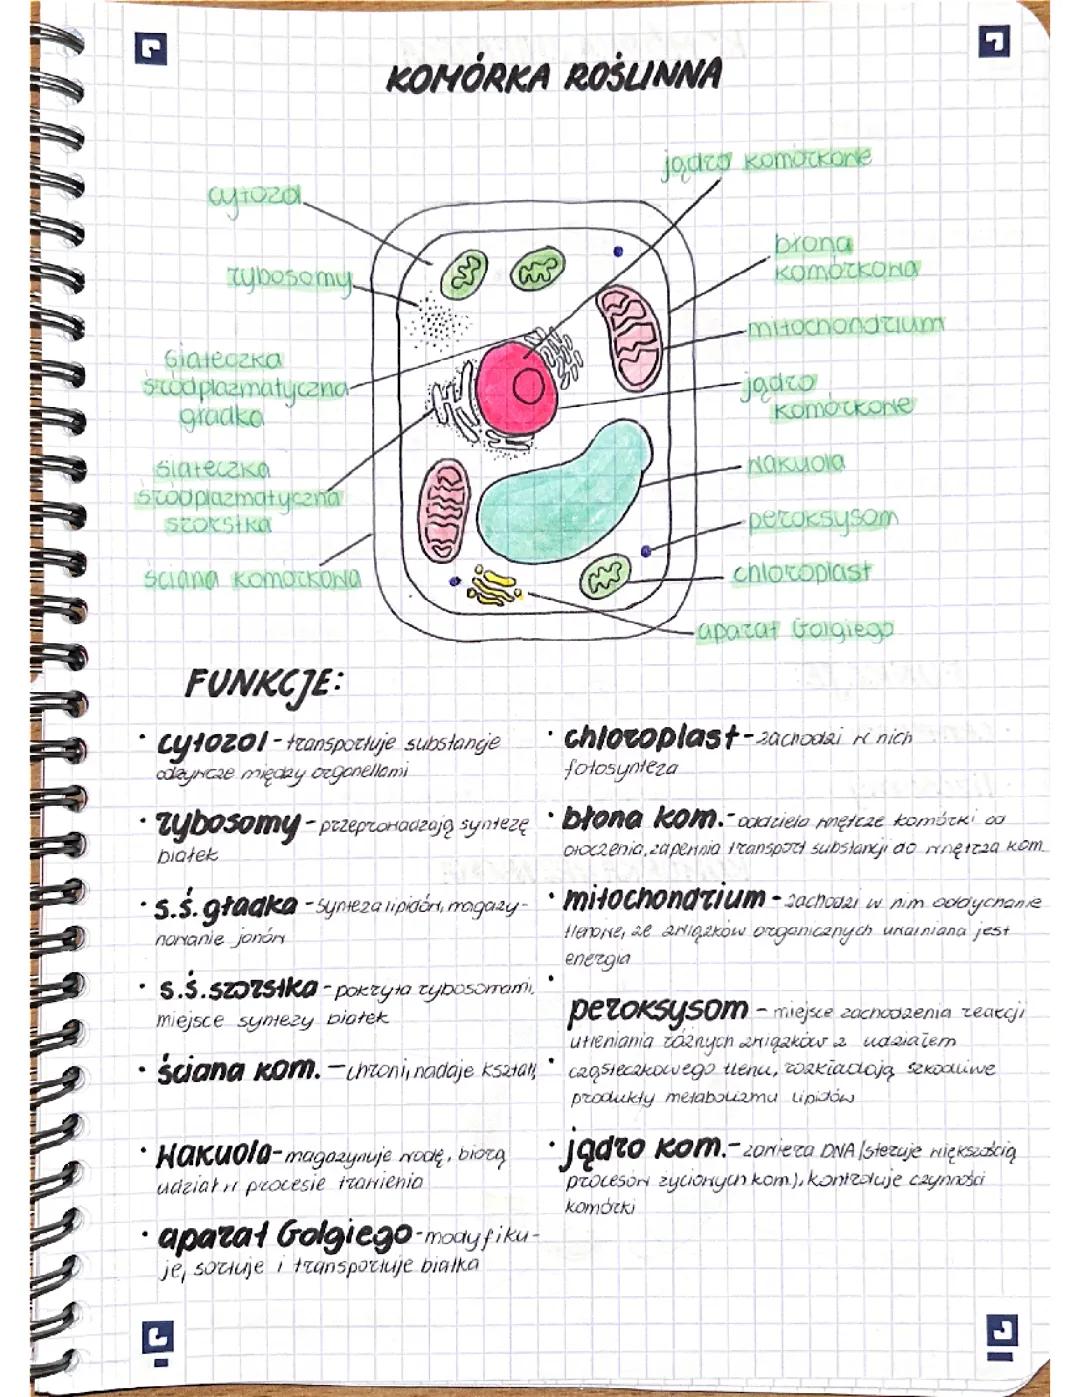 KOMÓRKA ROŚLINNA
jądro komórkowe
cytozol
błona
komórkowa
rybosomy
mitochondrium
siateczka
śródplazmatyczna
gładka
jądro
komórkowe
siateczka
śródplazmatyczna
szorstka
wakuola
peroksysom
ściana komórkowa
chloroplast
aparat Golgiego
FUNKCJE:
• cytozol - transportuje substancje
odżywcze między organellami
• rybosomy - przeprowadzają syntezę
białek
• s.ś. gładka - synteza lipidów, magazy-
nowanie jonów
• s.ś. szorstka - pokryta rybosomami,
miejsce syntezy białek
• ściana kom. - chroni, nadaje kształt
• wakuola - magazynuje wodę, biorą
udział w procesie trawienia
• aparat Golgiego - modyfiku-
je, sortuje i transportuje białka
• chloroplast - zachodzi w nich
fotosynteza
• błona kom. - oddziela wnętrze komórki od
otoczenia, zapewnia transport substancji do wnętrza kom.
• mitochondrium - zachodzi w nim oddychanie
tlenowe, ze związków organicznych uwalniana jest
energia
• peroksysom - miejsce zachodzenia reakcji
utleniania różnych związków z udziałem
• cząsteczkowego tlenu, rozkładają szkodliwe
produkty metabolizmu lipidów
• jądro kom. - zawiera DNA (steruje większością
procesów życiowych kom.), kontroluje czynności
komórki